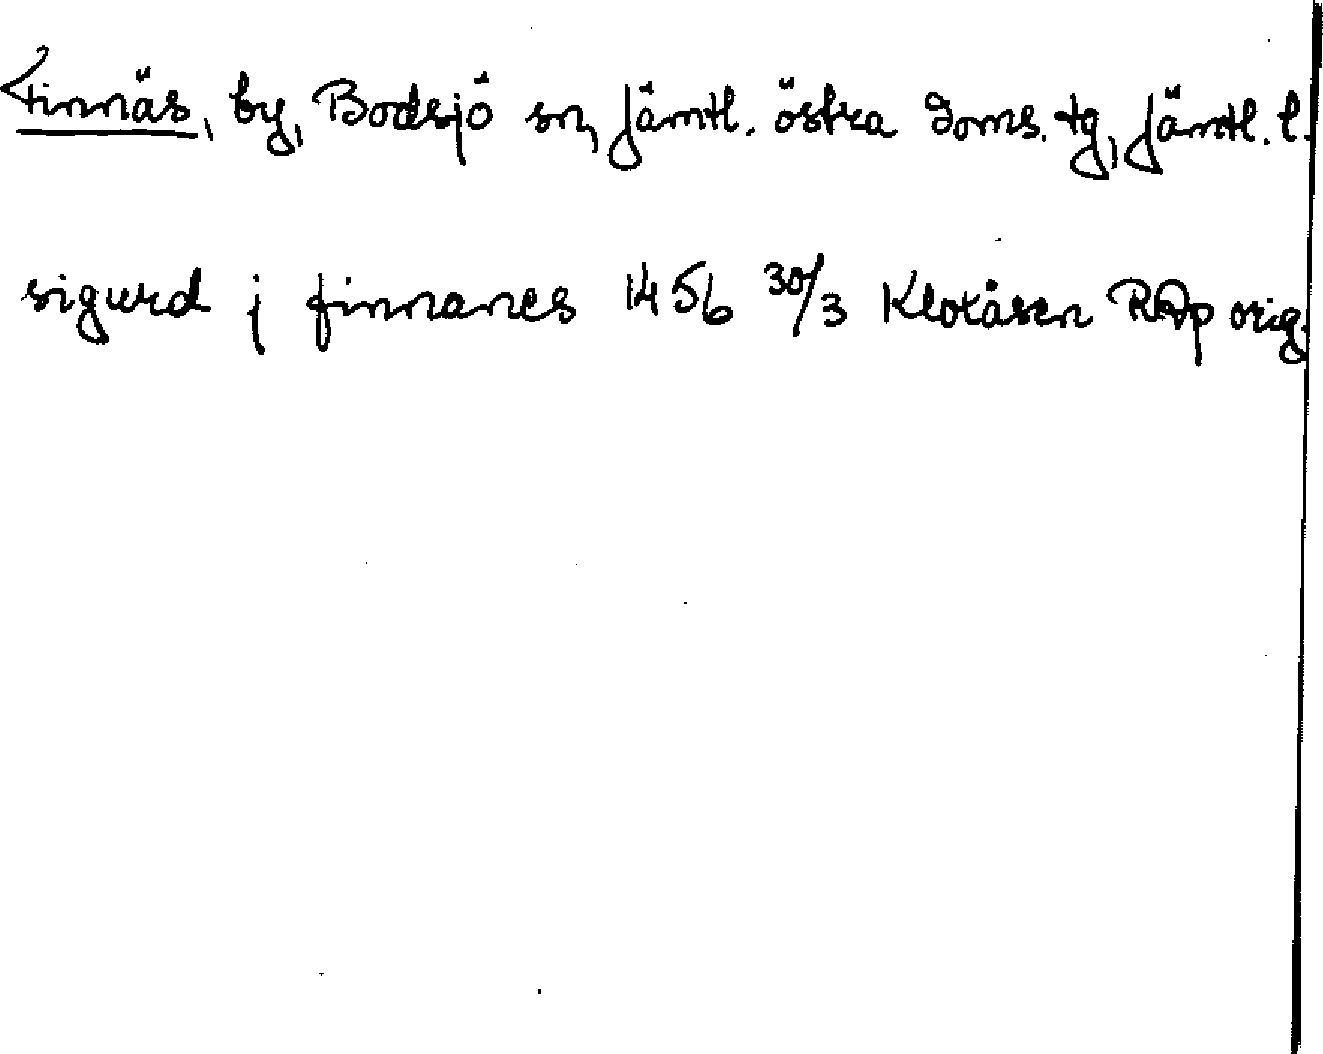 Finnäs, by, Bodsjö sn, Jämtl. östra doms. tg, Jämtl. l.
sigurd j finnanes 1456 30/3 Klotåsen RAp orig.